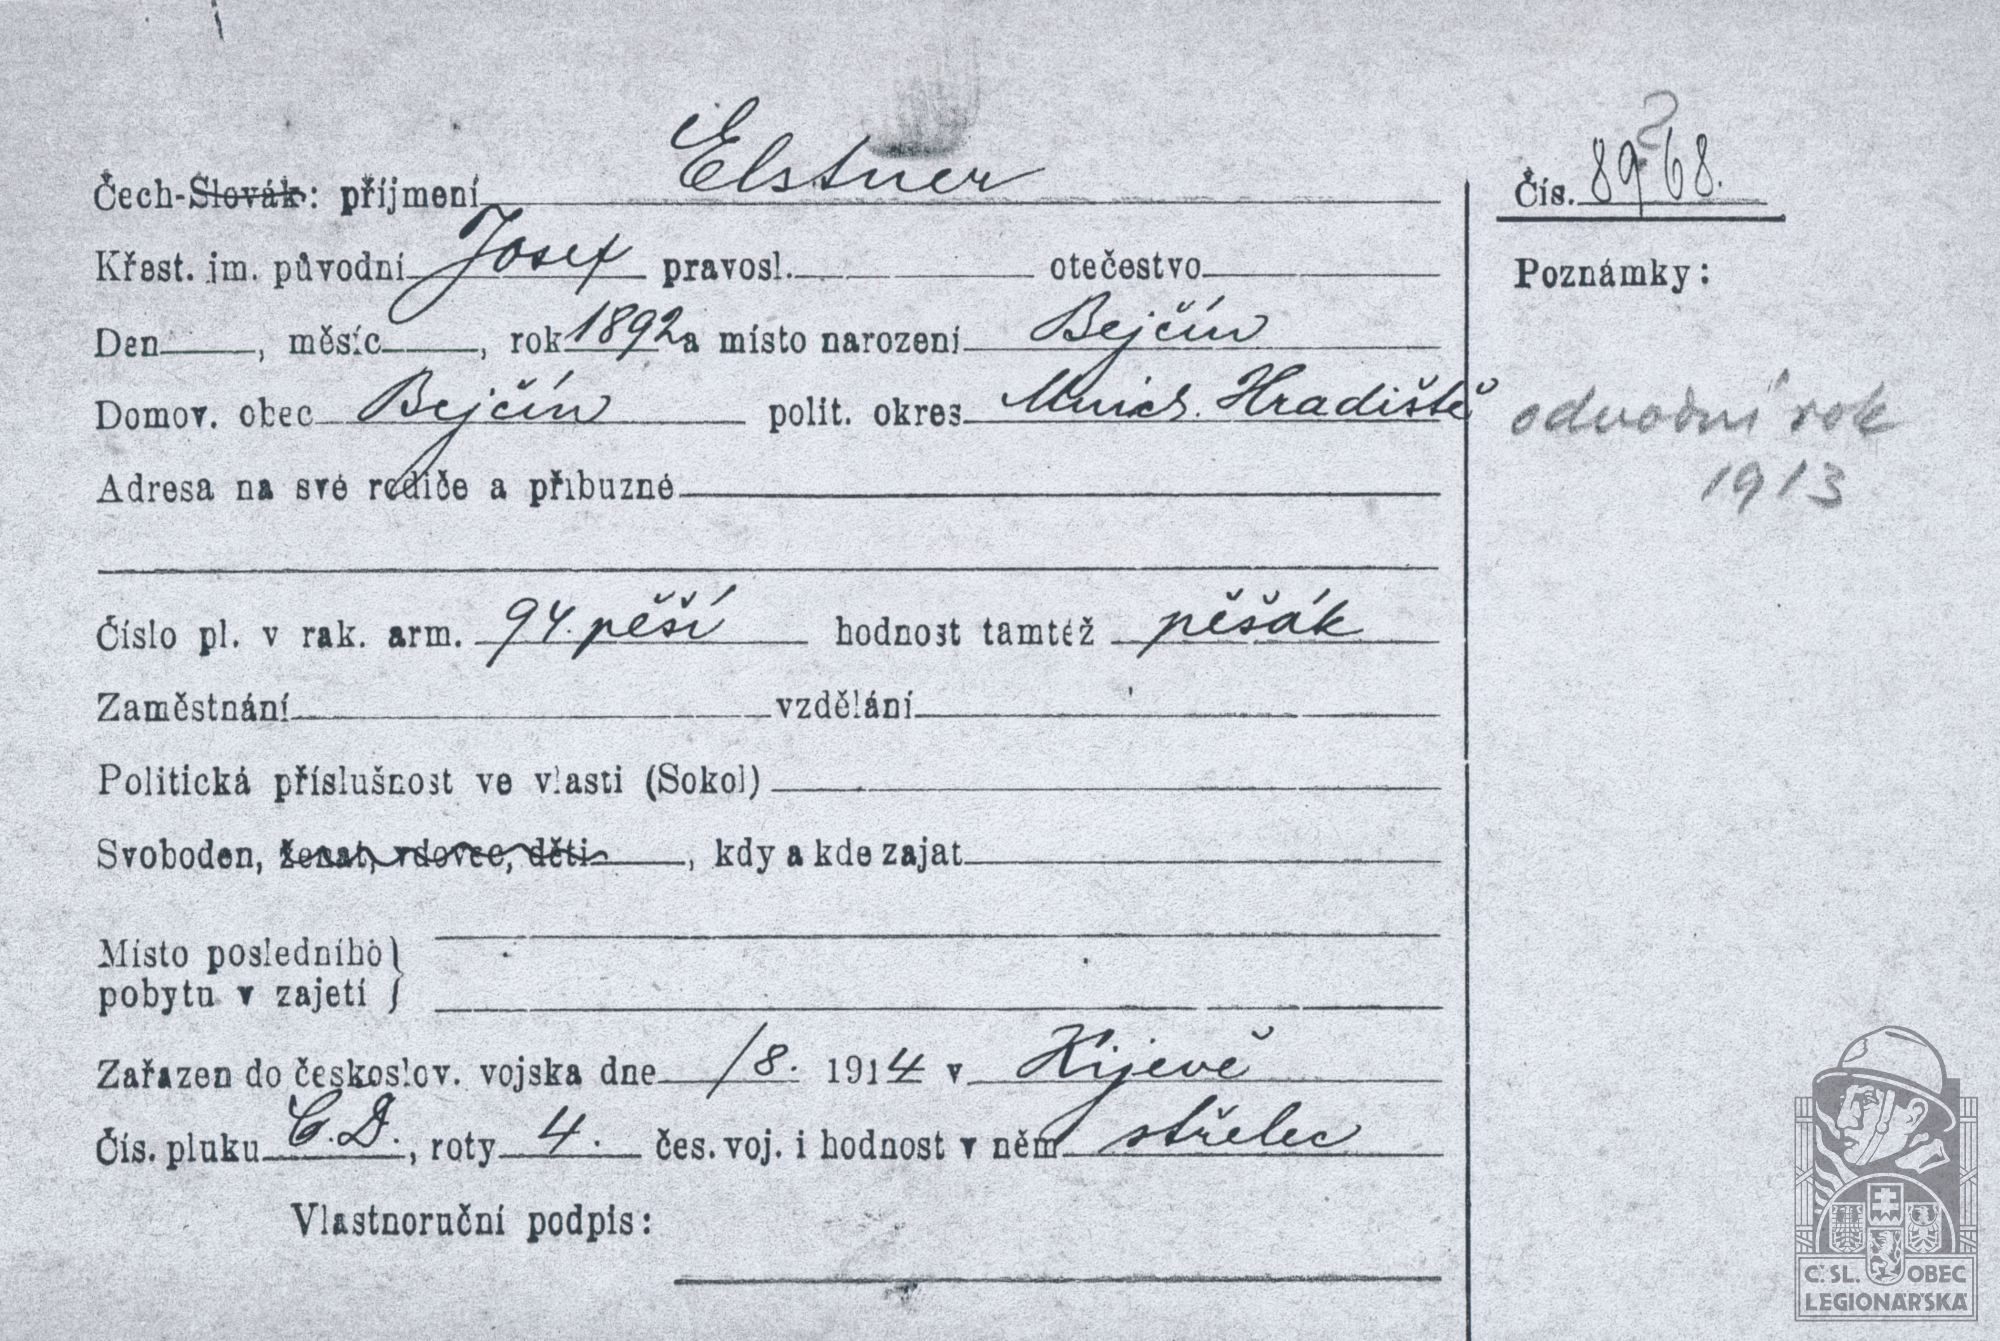 Čech-Slovák: příjmení Elstner
Čís. 8968.
Křest. jm. původní Josef pravosl. otečestvo
Poznámky:
Den , měsíc , rok 1892 a místo narození Bejčín
Domov. obec Bejčín polit. okres Mnich. Hradiště
odvodní rok
1913
Adresa na své rodiče a příbuzné
Číslo pl. v rak. arm. 94. pěší hodnost tamtéž pěšák
Zaměstnání vzdělání
Politická příslušnost ve vlasti (Sokol)
Svoboden, ženat, vdovec, děti , kdy a kde zajat
Místo posledního
pobytu v zajetí
Zařazen do českoslov. vojska dne /8. 1914 v Kijevě
Čís. pluku Č.D. , roty 4. čes. voj. i hodnost v něm střelec
Vlastnoruční podpis:
Č. SL. OBEC
LEGIONÁŘSKÁ